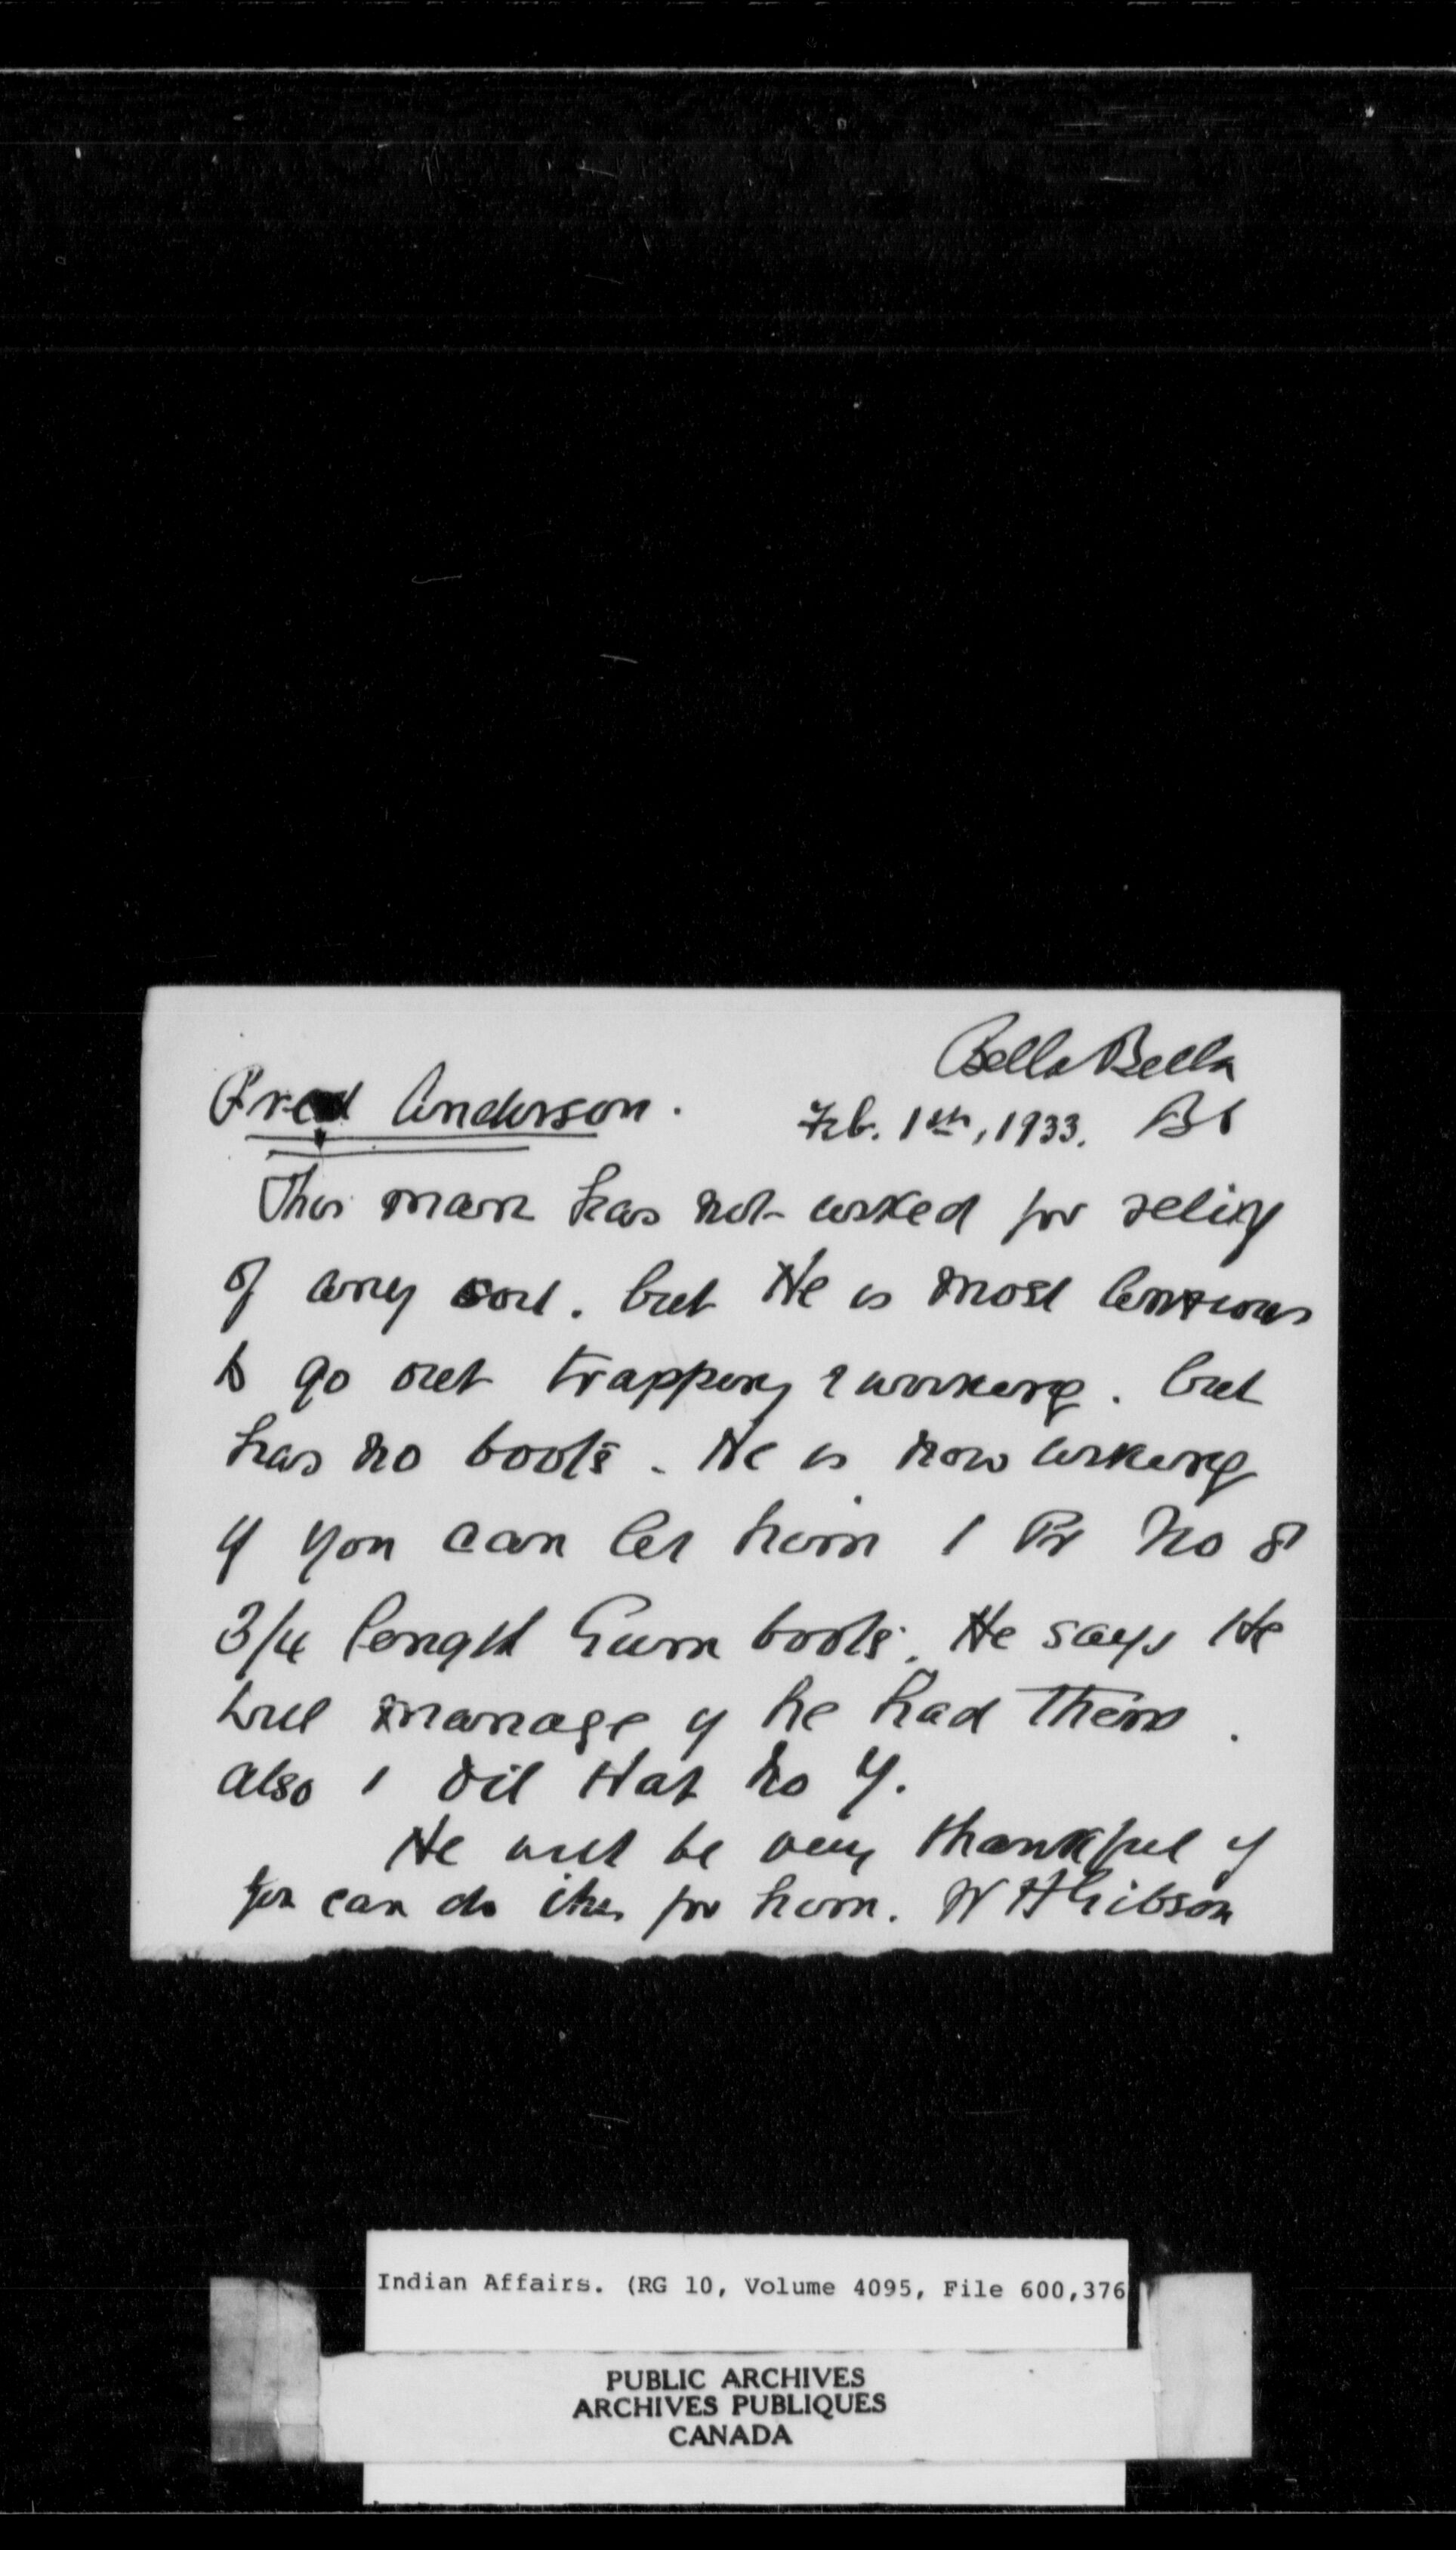 Bella Bella
Fred Anderson.
Feb. 1th, 1933. BC
This man has not asked for relief
of any sort. but He is most anxious
to go out trapping & working. but
has no boots. He is now asking
if you can let him 1 Pr No 8
3/4 length Gum boots. He says He
will manage if he had them.
also 1 oil Hat No 7.
He will be very thankful if
you can do this for him. W H Gibson
Indian Affairs. (RG 10, Volume 4095, File 600,376
PUBLIC ARCHIVES
ARCHIVES PUBLIQUES
CANADA